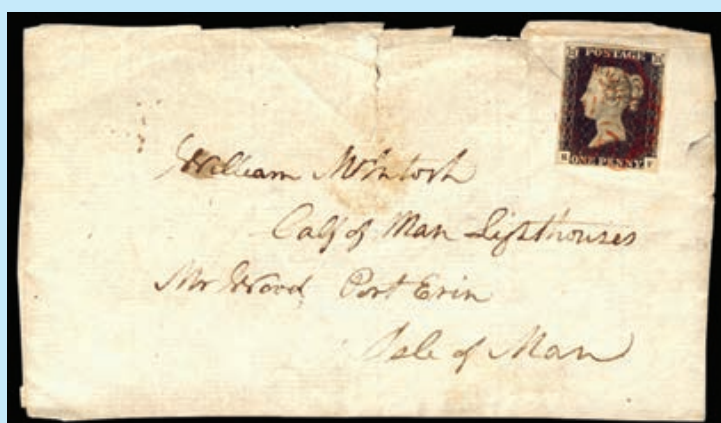 POSTAGE
ONE PENNY
William McIntosh
Calf of Man Lighthouses
Mr Wood Port Erin
Isle of Man